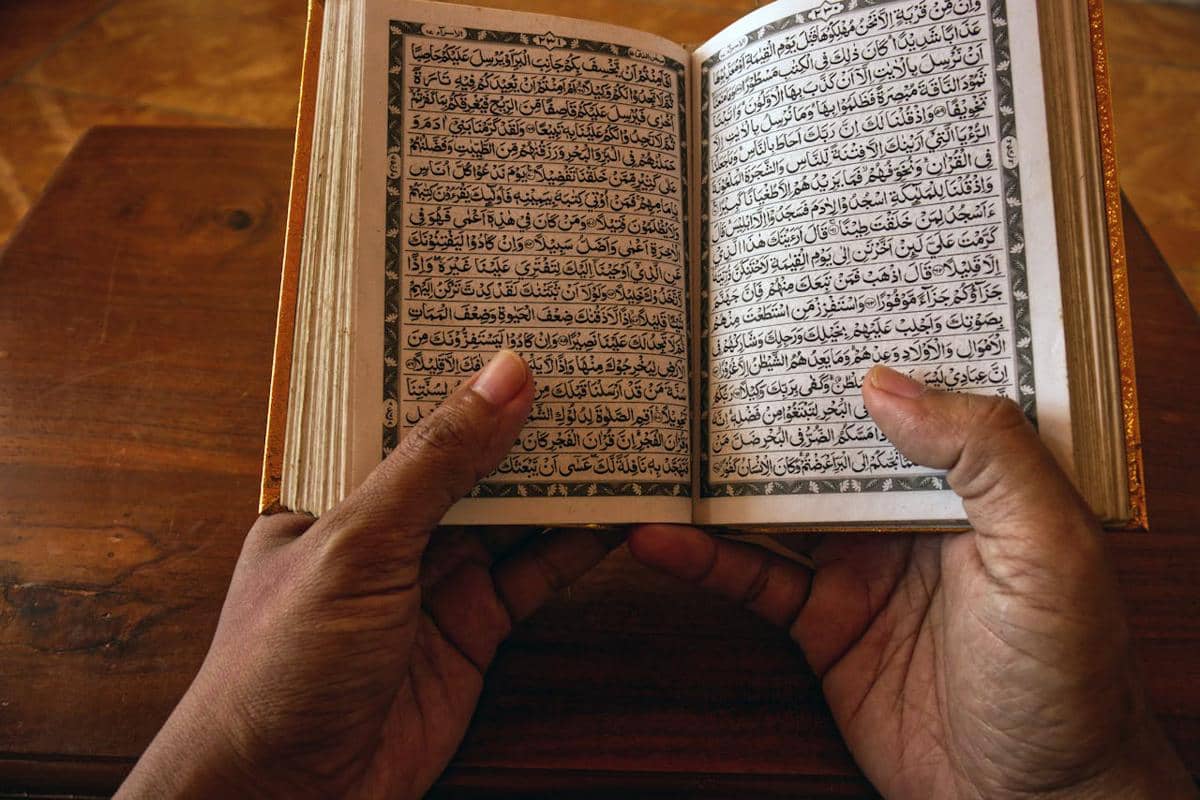 ٢٣٠
وَاِنْ مِّنْ قَرْيَةٍ اِلَّا نَحْنُ مُهْلِكُوْهَا قَبْلَ يَوْمِ الْقِيٰمَةِ اَوْ مُعَذِّبُوْهَا
عَذَابًا شَدِيْدًا كَانَ ذٰلِكَ فِى الْكِتٰبِ مَسْطُوْرًا
اَنْ نُّرْسِلَ بِالْاٰيٰتِ اِلَّآ اَنْ كَذَّبَ بِهَا الْاَوَّلُوْنَ وَاٰتَيْنَا
ثَمُوْدَ النَّاقَةَ مُبْصِرَةً فَظَلَمُوْا بِهَا وَمَا نُرْسِلُ بِالْاٰيٰتِ اِلَّا
تَخْوِيْفًا وَاِذْ قُلْنَا لَكَ اِنَّ رَبَّكَ اَحَاطَ بِالنَّاسِ وَمَا جَعَلْنَا
الرُّءْيَا الَّتِىْٓ اَرَيْنٰكَ اِلَّا فِتْنَةً لِّلنَّاسِ وَالشَّجَرَةَ الْمَلْعُوْنَةَ
فِى الْقُرْاٰنِ وَنُخَوِّفُهُمْ فَمَا يَزِيْدُهُمْ اِلَّا طُغْيَانًا كَبِيْرًا
وَاِذْ قُلْنَا لِلْمَلٰٓئِكَةِ اسْجُدُوْا لِاٰدَمَ فَسَجَدُوْٓا اِلَّآ اِبْلِيْسَ قَالَ
ءَاَسْجُدُ لِمَنْ خَلَقْتَ طِيْنًا قَالَ اَرَءَيْتَكَ هٰذَا الَّذِىْ
كَرَّمْتَ عَلَىَّ لَئِنْ اَخَّرْتَنِ اِلٰى يَوْمِ الْقِيٰمَةِ لَاَحْتَنِكَنَّ ذُرِّيَّتَهٗٓ
اِلَّا قَلِيْلًا قَالَ اذْهَبْ فَمَنْ تَبِعَكَ مِنْهُمْ فَاِنَّ جَهَنَّمَ
جَزَآؤُكُمْ جَزَآءً مَّوْفُوْرًا وَاسْتَفْزِزْ مَنِ اسْتَطَعْتَ مِنْهُمْ
بِصَوْتِكَ وَاَجْلِبْ عَلَيْهِمْ بِخَيْلِكَ وَرَجِلِكَ وَشَارِكْهُمْ فِى
الْاَمْوَالِ وَالْاَوْلَادِ وَعِدْهُمْ وَمَا يَعِدُهُمُ الشَّيْطٰنُ اِلَّا غُرُوْرًا
اِنَّ عِبَادِىْ لَيْسَ سُلْطٰنٌ وَكَفٰى بِرَبِّكَ وَكِيْلًا رَبُّكُمُ
فِى الْبَحْرِ لِتَبْتَغُوْا مِنْ فَضْلِهٖ اِنَّهٗ
مَسَّكُمُ الضُّرُّ فِى الْبَحْرِ ضَلَّ مَنْ
نَجّٰىكُمْ اِلَى الْبَرِّ اَعْرَضْتُمْ وَكَانَ الْاِنْسَانُ كَفُوْرًا
٢٣١
الاسرآء ١٧
اَفَاَمِنْتُمْ اَنْ يَّخْسِفَ بِكُمْ جَانِبَ الْبَرِّ اَوْ يُرْسِلَ عَلَيْكُمْ حَاصِبًا
ثُمَّ لَا تَجِدُوْا لَكُمْ وَكِيْلًا اَمْ اَمِنْتُمْ اَنْ يُّعِيْدَكُمْ فِيْهِ تَارَةً
اُخْرٰى فَيُرْسِلَ عَلَيْكُمْ قَاصِفًا مِّنَ الرِّيْحِ فَيُغْرِقَكُمْ بِمَا كَفَرْتُمْ
ثُمَّ لَا تَجِدُوْا لَكُمْ عَلَيْنَا بِهٖ تَبِيْعًا وَلَقَدْ كَرَّمْنَا بَنِىْٓ اٰدَمَ وَ
حَمَلْنٰهُمْ فِى الْبَرِّ وَالْبَحْرِ وَرَزَقْنٰهُمْ مِّنَ الطَّيِّبٰتِ وَفَضَّلْنٰهُمْ
عَلٰى كَثِيْرٍ مِّمَّنْ خَلَقْنَا تَفْضِيْلًا يَوْمَ نَدْعُوْا كُلَّ اُنَاسٍ
بِاِمَامِهِمْ فَمَنْ اُوْتِىَ كِتٰبَهٗ بِيَمِيْنِهٖ فَاُولٰٓئِكَ يَقْرَءُوْنَ كِتٰبَهُمْ
وَلَا يُظْلَمُوْنَ فَتِيْلًا وَمَنْ كَانَ فِىْ هٰذِهٖٓ اَعْمٰى فَهُوَ فِى
الْاٰخِرَةِ اَعْمٰى وَاَضَلُّ سَبِيْلًا وَاِنْ كَادُوْا لَيَفْتِنُوْنَكَ
عَنِ الَّذِىْٓ اَوْحَيْنَآ اِلَيْكَ لِتَفْتَرِىَ عَلَيْنَا غَيْرَهٗ وَاِذًا
لَّاتَّخَذُوْكَ خَلِيْلًا وَلَوْلَآ اَنْ ثَبَّتْنٰكَ لَقَدْ كِدْتَّ تَرْكَنُ اِلَيْهِمْ
شَيْئًا قَلِيْلًا اِذًا لَّاَذَقْنٰكَ ضِعْفَ الْحَيٰوةِ وَضِعْفَ الْمَمَاتِ
ثُمَّ لَا تَجِدُ لَكَ عَلَيْنَا نَصِيْرًا وَاِنْ كَادُوْا لَيَسْتَفِزُّوْنَكَ مِنَ
الْاَرْضِ لِيُخْرِجُوْكَ مِنْهَا وَاِذًا لَّا اِلَّا قَلِيْلًا
سُنَّةَ مَنْ قَدْ اَرْسَلْنَا قَبْلَكَ مِنْ لِسُنَّتِنَا
تَحْوِيْلًا اَقِمِ الصَّلٰوةَ لِدُلُوْكِ الشَّمْسِ
وَقُرْاٰنَ الْفَجْرِ اِنَّ قُرْاٰنَ الْفَجْرِ كَانَ
فَتَهَجَّدْ بِهٖ نَافِلَةً لَّكَ عَسٰٓى اَنْ يَّبْعَثَكَ